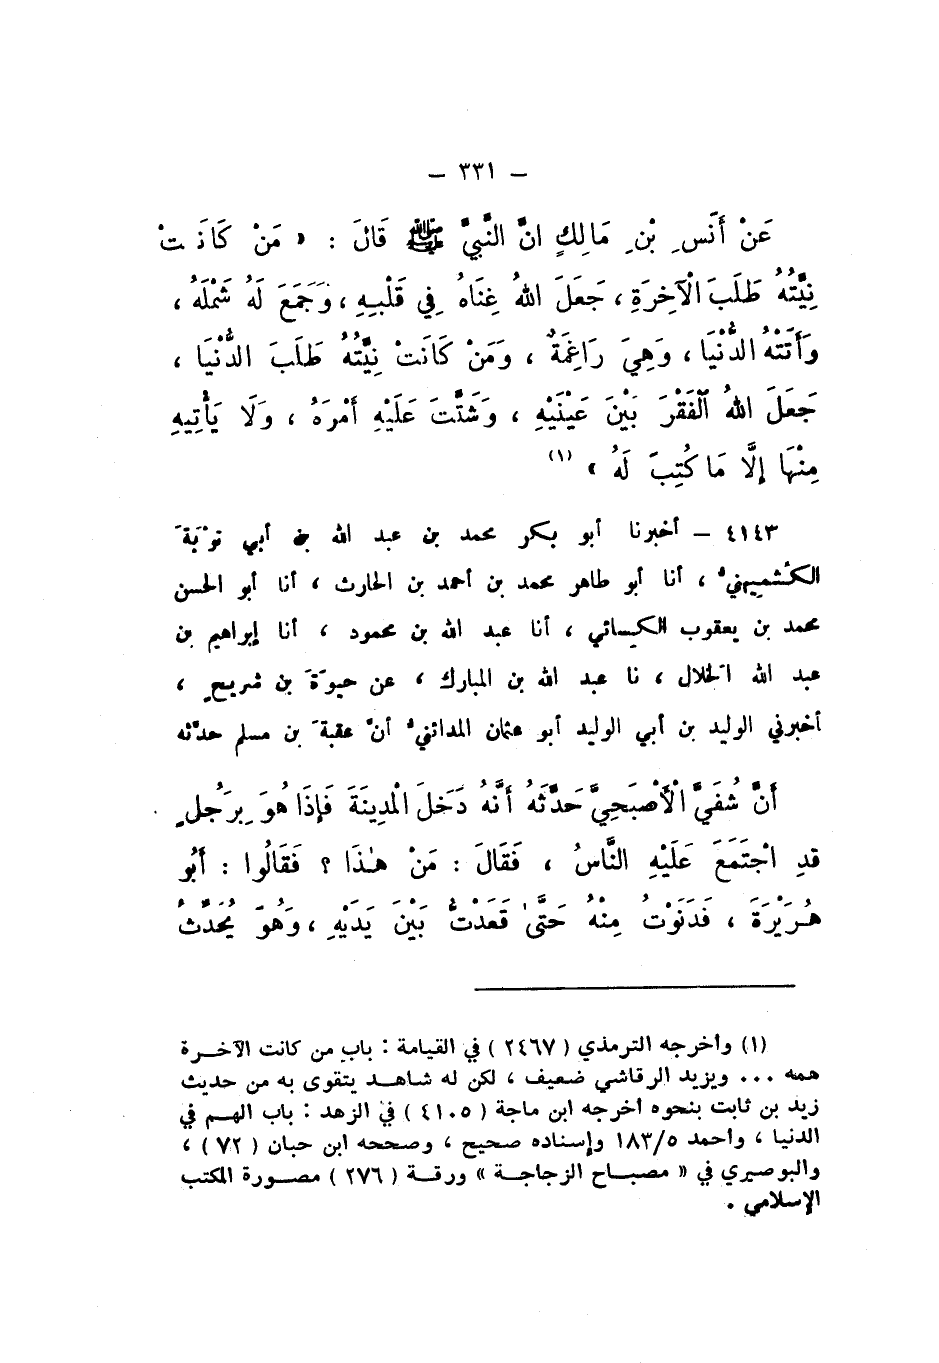 – ٣٣١ –
عَنْ أَنَسِ بْنِ مَالِكٍ انَّ النَّبِيَّ ﷺ قَالَ : « مَنْ كَانَتْ
نِيَّتُهُ طَلَبَ الْآخِرَةِ ، جَعَلَ اللهُ غِنَاهُ فِي قَلْبِهِ ، وَجَمَعَ لَهُ شَمْلَهُ ،
وَأَتَتْهُ الدُّنْيَا ، وَهِيَ رَاغِمَةٌ ، وَمَنْ كَانَتْ نِيَّتُهُ طَلَبَ الدُّنْيَا ،
جَعَلَ اللهُ الْفَقْرَ بَيْنَ عَيْنَيْهِ ، وَشَتَّتَ عَلَيْهِ أَمْرَهُ ، وَلَا يَأْتِيهِ
مِنْهَا إِلَّا مَا كُتِبَ لَهُ » (١)
٤١٤٣ – أخبرنا أبو بكر محمد بن عبد الله بن أبي توْبَةَ
الكُشْمِيهنيُّ ، أنا أبو طاهر محمد بن أحمد بن الحارث ، أنا أبو الحسن
محمد بن يعقوب الكسائي ، أنا عبد الله بن محمود ، أنا إبراهيم بن
عبد الله الخَلال ، نا عبد الله بن المبارك ، عن حيوَةَ بن شريحٍ ،
أخبرني الوليد بن أبي الوليد أبو عثمان المدائنيُّ أنَّ عقبةَ بن مسلم حدَّثه
أَنَّ شُفَيَّ الْأَصْبَحِيَّ حَدَّثَهُ أَنَّهُ دَخَلَ الْمَدِينَةَ فَإِذَا هُوَ بِرَجُلٍ
قَدِ اجْتَمَعَ عَلَيْهِ النَّاسُ ، فَقَالَ : مَنْ هٰذَا ؟ فَقَالُوا : أَبُو
هُرَيْرَةَ ، فَدَنَوْتُ مِنْهُ حَتَّىٰ قَعَدْتُ بَيْنَ يَدَيْهِ ، وَهُوَ يُحَدِّثُ
(١) وأخرجه الترمذي ( ٢٤٦٧ ) في القيامة : باب من كانت الآخرة
همه ... ويزيد الرقاشي ضعيف ، لكن له شاهد يتقوى به من حديث
زيد بن ثابت بنحوه أخرجه ابن ماجة ( ٤١٠٥ ) في الزهد : باب الهم في
الدنيا ، وأحمد ١٨٣/٥ وإسناده صحيح ، وصححه ابن حبان ( ٧٢ ) ،
والبوصيري في « مصباح الزجاجة » ورقة ( ٢٧٦ ) مصورة المكتب
الإسلامي .